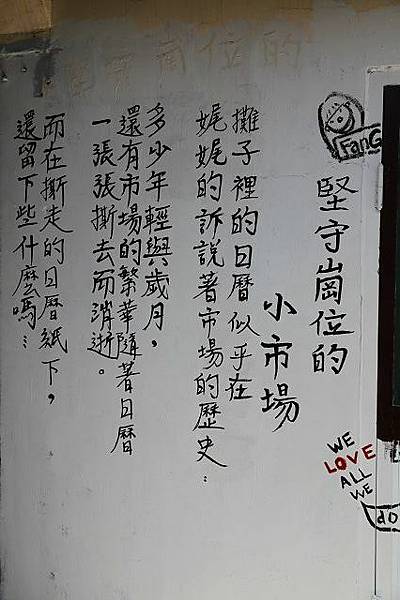 堅守崗位的
小市場
攤子裡的日曆似乎在
娓娓的訴說著市場的歷史：
多少年輕與歲月，
還有市場的繁華隨著日曆
一張張撕去而消逝。
而在撕走的日曆紙下，
還留下些什麼嗎…
FanG
WE
LOVE
ALL
WE
do